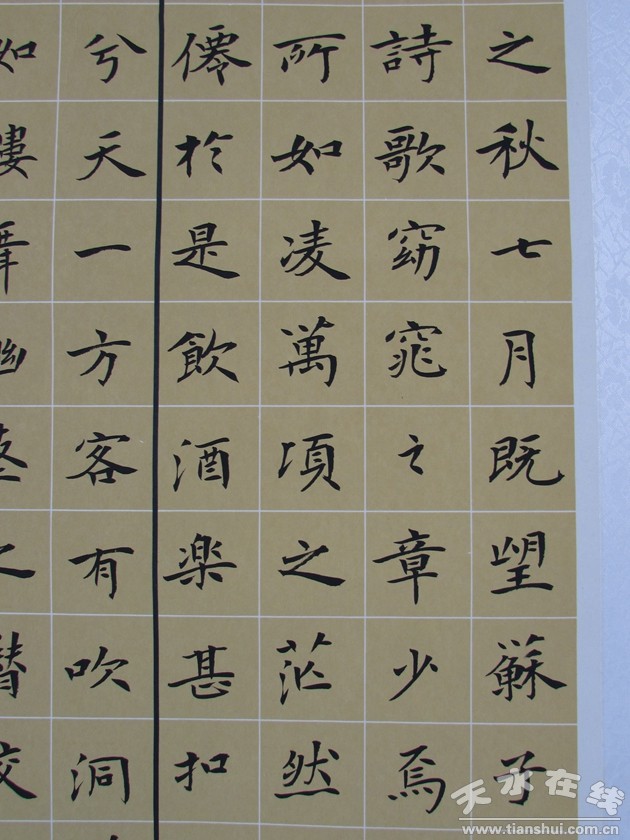 之秋七月既望蘇子
詩歌窈窕之章少焉
所如凌萬頃之茫然
僊於是飲酒楽甚扣
兮天一方客有吹洞
天水在线
www.tianshui.com.cn